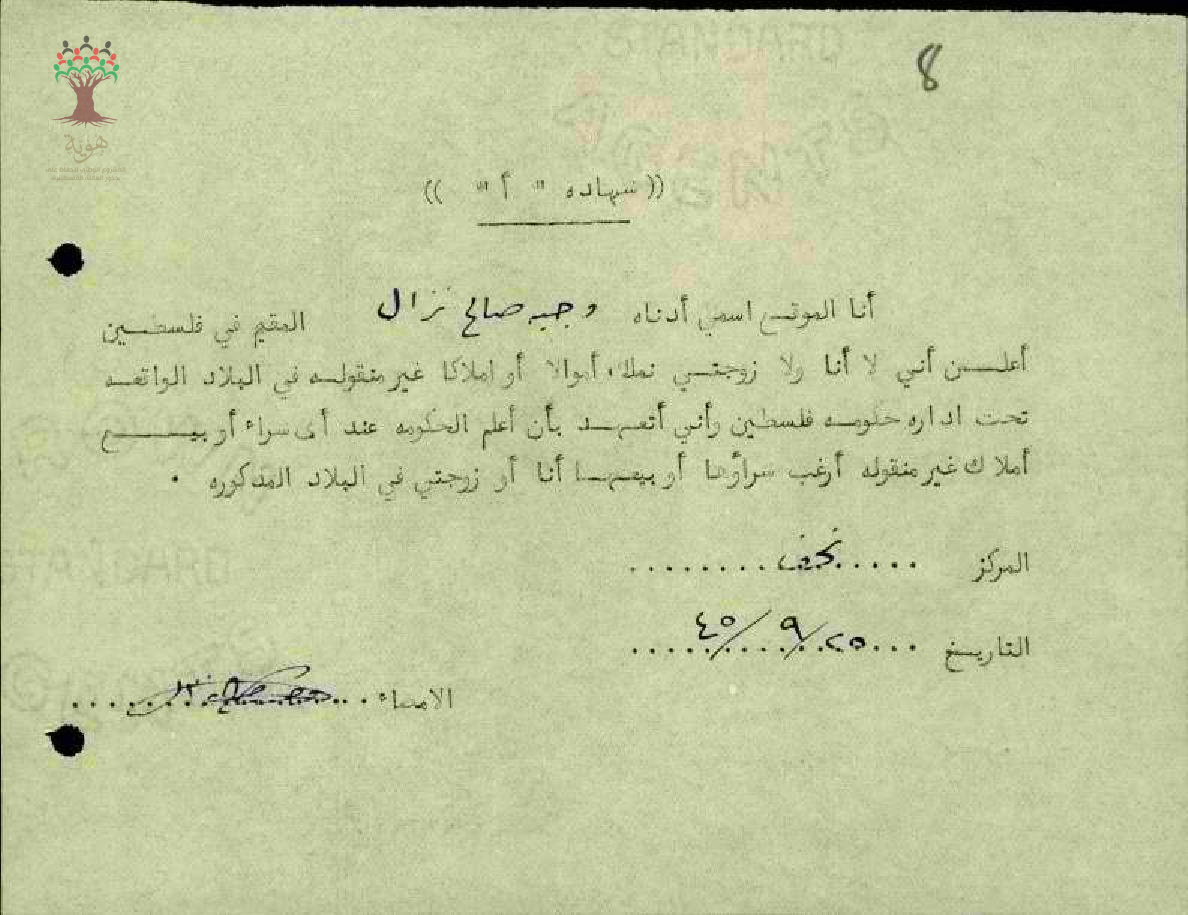 8
هوية
((شهاده " أ "))
أنا الموقع اسمي أدناه وجيه صالح نزال المقيم في فلسطين
أعلن أني لا أنا ولا زوجتي نملك أموالا أو املاكا غير منقوله في البلاد الواقعه
تحت اداره حكومه فلسطين وأني أتعهد بأن أعلم الحكومه عند أى شراء أو بيع
أملاك غير منقوله أرغب شراؤها أو بيعها أنا أو زوجتي في البلاد المذكوره .
المركز
التاريخ ٢٥/٩/٤٥
الامضاء